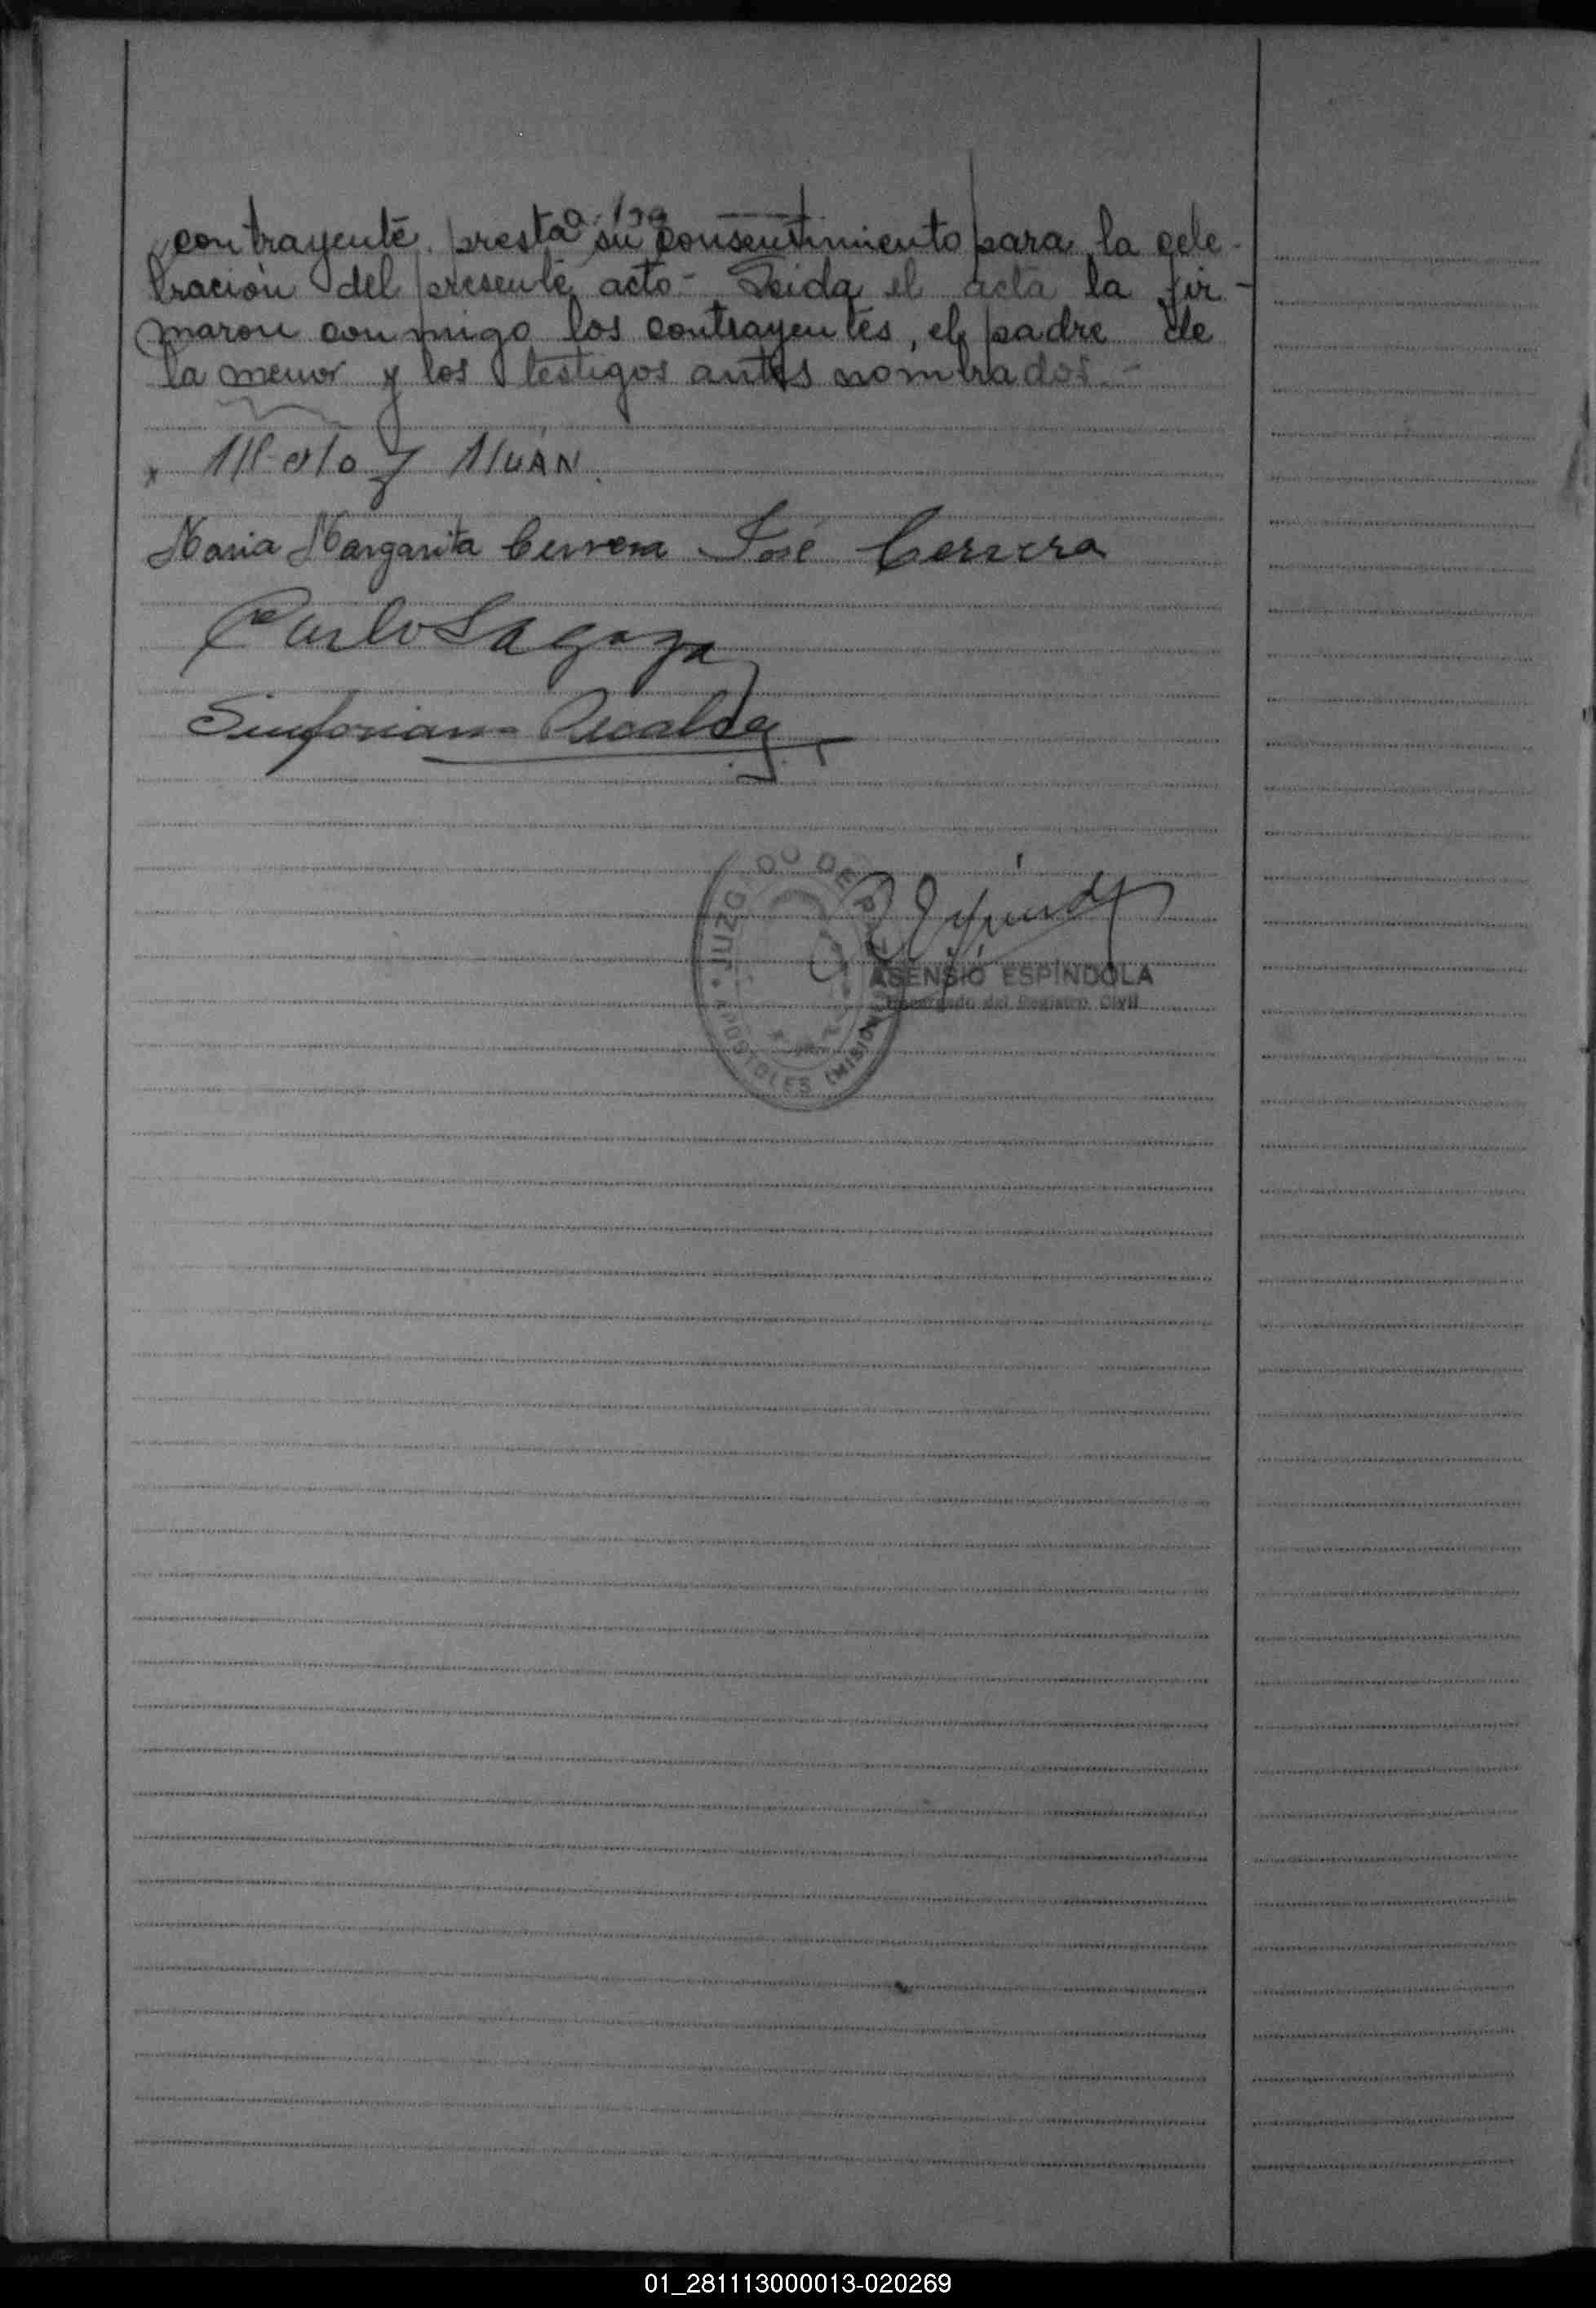 contrayente presta su consentimiento para la cele-
bración del presente acto- Leida el acta la fir-
maron conmigo los contrayentes, el padre de
la menor y los testigos antes nombrados.-
Maria Margarita Cerrera José Cererra
Sinforiano Recalde
JUZGADO DE PAZ
APOSTOLES (MISIONES)
ASENSIO ESPÍNDOLA
Encargado del Registro Civil
01_281113000013-020269